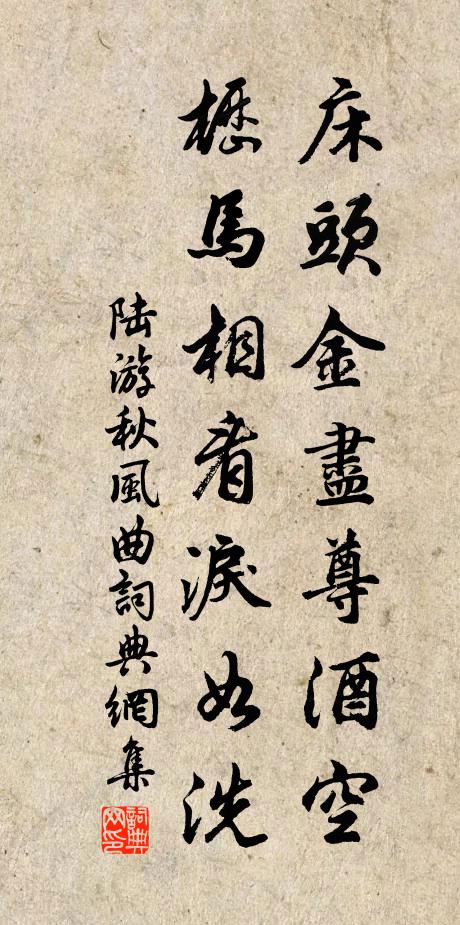 床頭金盡尊酒空
櫪馬相看淚如洗
陆游秋風曲詞典網集
詞典网印